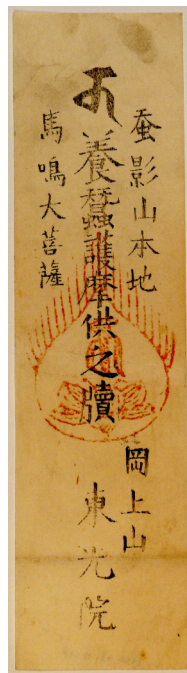 蚕影山本地
養蠶護摩供之牘
馬鳴大菩薩
岡上山
東光院